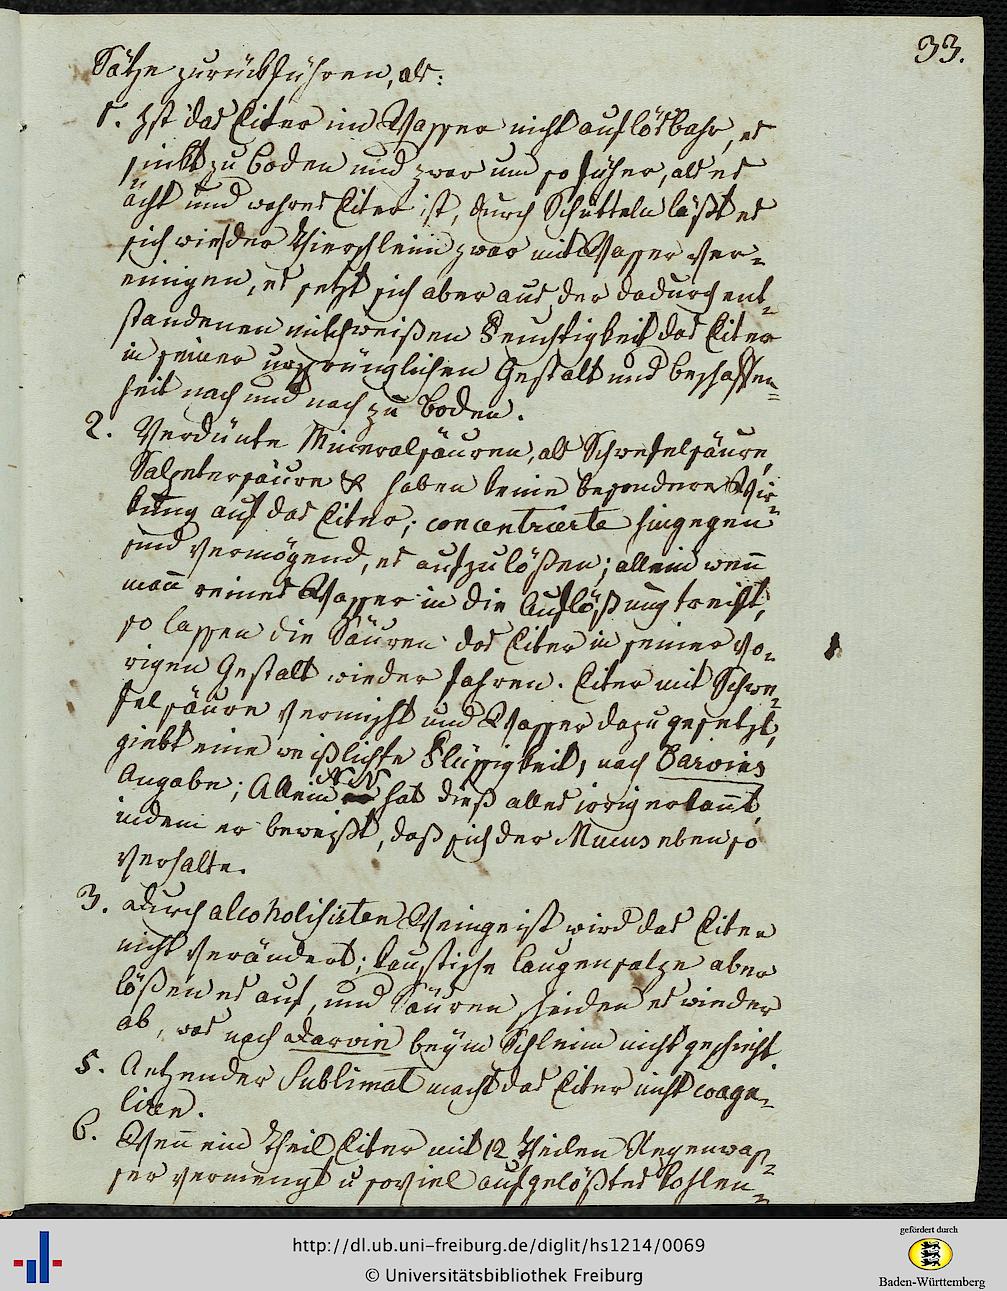 33.
Sätze zurückführen, als:
1. Ist das Eiter im Wasser nicht auflösbahr, es
sinkt zu Boden und zwar um so früher, als es
ächt und wahres Eiter ist, durch Schütteln läßt es
sich wie der Thierschleim zwar mit Wasser ver-
einigen, es setzt sich aber aus der dadurch ent-
standenen milchweißen Feuchtigkeit das Eiter
in seiner ursprünglichen Gestalt und Beschaffen-
heit nach und nach zu Boden.
2. Verdünte Mineralsäuren, als Schwefelsäure,
Salpetersäure & haben keine besondere Wir-
kung auf das Eiter; concentrierte hingegen
sind vermögend, es aufzulößen; allein wenn
man reines Wasser in die Auflößung treift,
so lassen die Säuren das Eiter in seiner vo-
rigen Gestalt wieder fahren. Eiter mit Schwe-
felsäure vermischt und Wasser dazu gesetzt,
giebt eine weißlichte Flüssigkeit, nach Darwins
Angabe; Allein NN hat dieß alles irrig erkannt,
indem er beweißt, daß sich der Mucus eben so
verhalte.
3. Durch alcoholisirten Weingeist wird das Eiter
nicht verändert; kaustische Laugensalze aber
lößen es auf, und Säuren scheiden es wieder
ab, was nach Darwin beym Schleim nicht geschieht.
5. Aetzender Sublimat macht das Eiter nicht coagu-
liren.
6. Wenn ein Theil Eiter mit 12 Theilen Regenwas-
ser vermengt u soviel aufgelößtes Kohlen-
http://dl.ub.uni-freiburg.de/diglit/hs1214/0069
© Universitätsbibliothek Freiburg
gefördert durch
Baden-Württemberg